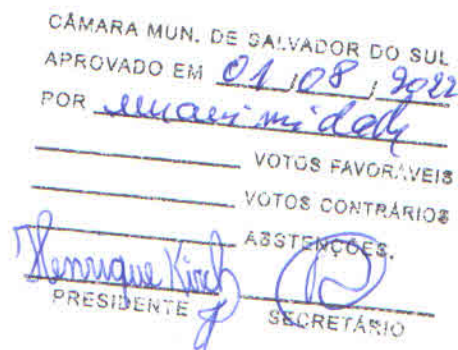 CÂMARA MUN. DE SALVADOR DO SUL
APROVADO EM 01 / 08 / 2022
POR unanimidade
VOTOS FAVORÁVEIS
VOTOS CONTRÁRIOS
ABSTENÇÕES.
Henrique Kirch
PRESIDENTE
SECRETÁRIO